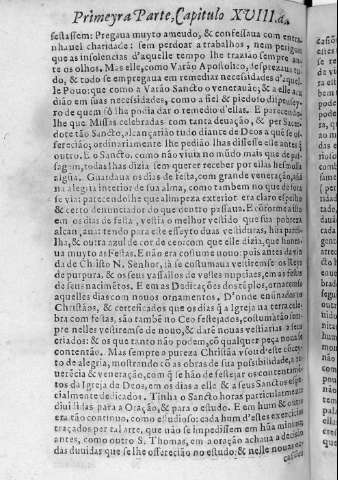 Primeyra Parte, Capitulo XVIII.
festassem: Pregaua muyto ameudo, & confessaua com entra-
nhauel charidade: sem perdoar a trabalhos, nem perigos
que as insolencias d'aquelle tempo lhe traziao sempre an-
te os olhos. Mas elle, como Varão Apostolico, desprezaua tu-
do, & todo se empregaua em remediar necessidades d'aquel-
le Pouo: que como a Varão Sancto o venerauaõ; & a elle acu-
dião em suas necessidades, como a fiel & piedoso dispenseyr-
ro de quem só lha podia dar o remedio d'ellas. E parecendo-
lhe que Missas celebradas com tanta deuação, & por Sacer-
dote tão Sancto, alcançarião tudo diante de Deos a quê se of-
ferecião; ordinariamente lhe pedião lhas dissesse elle antes q
outro. E o Sancto, como não viuia no mûdo mais que de pas-
sagem, todas lhas dizia sem querer receber por ellas hesmolla
algũa. Guardaua os dias de festa, com grande veneração, assi
na alegria interior de sua alma, como tambem no que de fóra
se via: parecendolhe que a limpeza exterior era claro espelho
& certo denunciador do que dentro passaua. E côforme a isso
em os dias de festa, vestia o melhor vestido que sua pobreza
alcançaua: tendo para este effeyto duas vestiduras, hũa pardi-
lha, & outra azul de cor de ceo: com que elle dizia, que honra-
ua muyto as Festas. E não era costume nouo: pois antes da vin-
da de Christo N. Senhor, já se costumaua vestirem-se os Reys
de purpura, & os seus vassallos de vestes nupciaes, em as festas
de seus nacimêtos. E em as Dedicações dos têplos, ornaremse
aquelles dias com nouos ornamentos. D'onde ensinados os
Christãos, & certeficados que os dias q a Igreja na terra cele-
bra com festas, são tambê no Ceo festejados, costumarão sem-
pre nelles vestiremse de nouo, & darê nouas vestiarias a seus
criados: & os que tanto não podem, cõ qualquer peça noua se
contentão. Mas sempre a pureza Christãa vsou d'este excey-
to de alegria, mostrando cõ as obras de sua possibilidade, a re-
uerêcia & veneração, com q se hão de festejar os contentamẽ-
tos da Igreja de Deos, em os dias a elle & a seus Sanctos espe-
cialmente dedicados. Tinha o Sancto horas particularmente
diuididas para a Oração, & para o estudo. E em hum & outro
era tão continuo, como estudioso: cada hum d'estes exercicios
traçados per tal arte, que não se impedissem em hũa minima:
antes, como outro S. Thomas, em a oração achaua a decisão
das duuidas que se lhe offerecião no estudo: & nelle nouas ex-